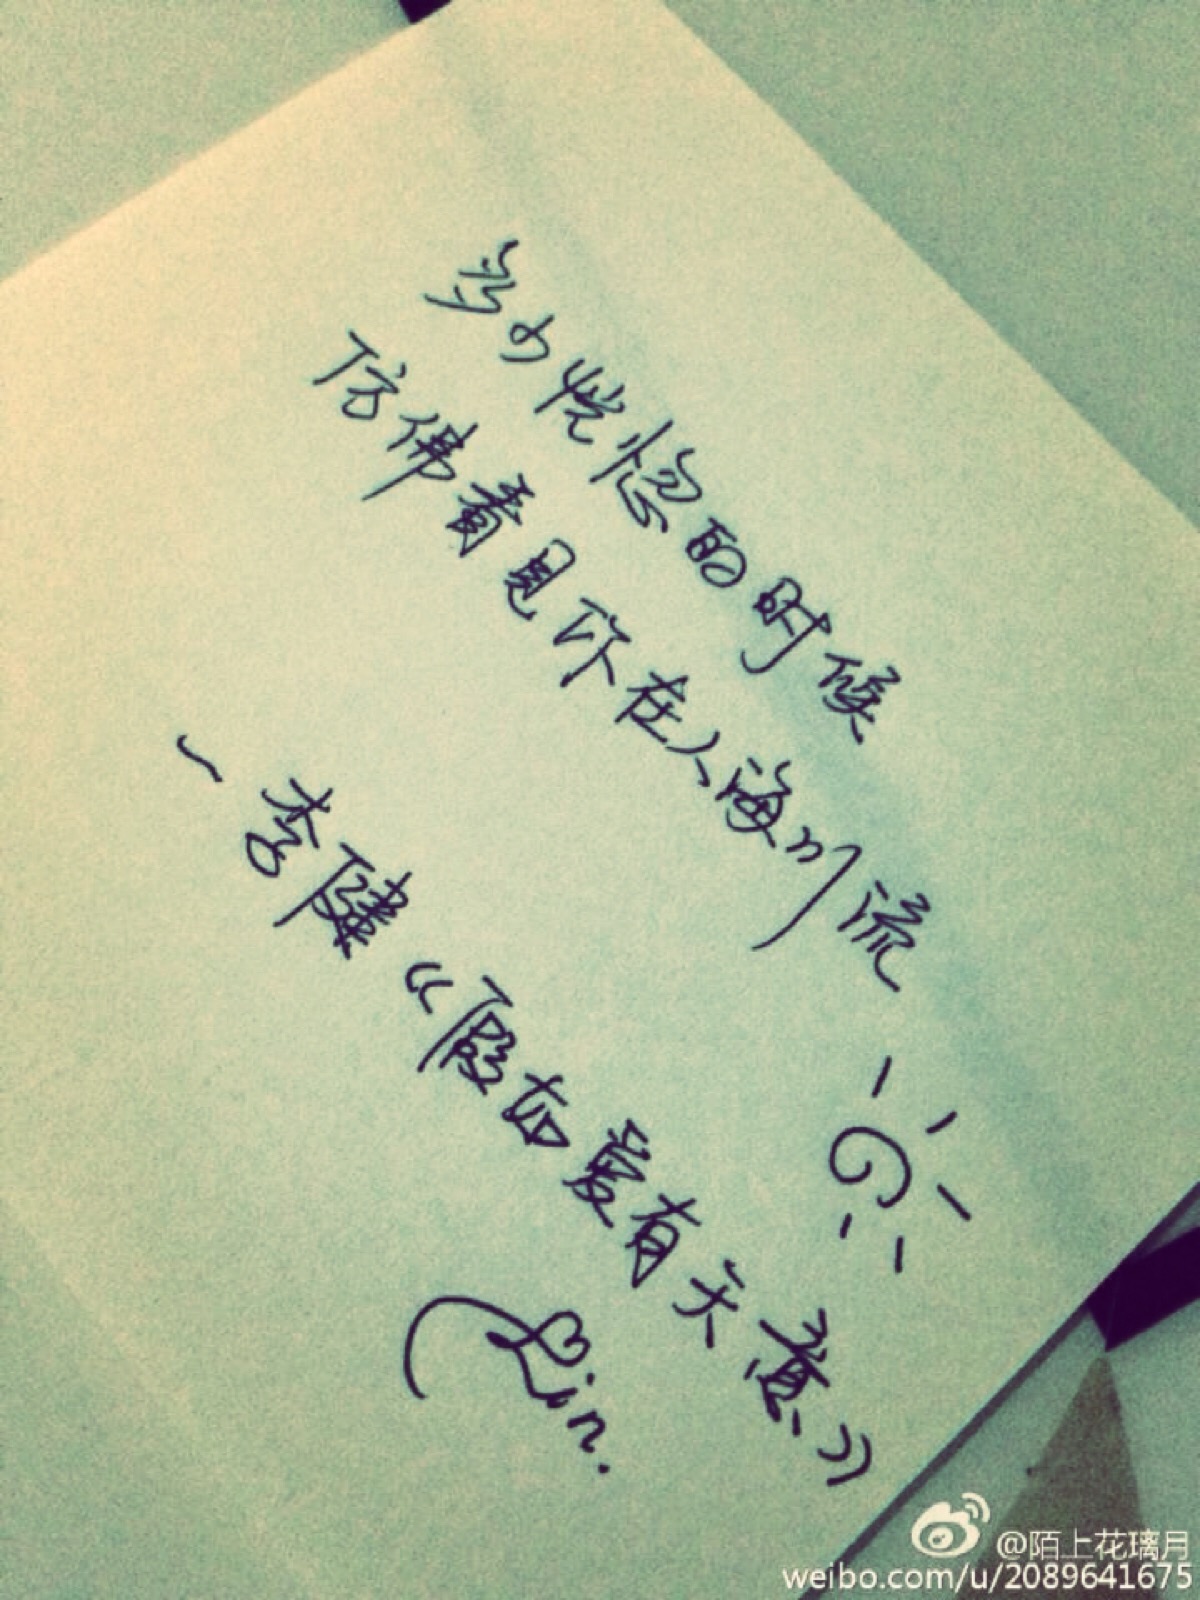 多少恍惚的时候
仿佛看见你在人海川流
一李健《假如爱有天意》
Lin.
@陌上花璃月
weibo.com/u/2089641675